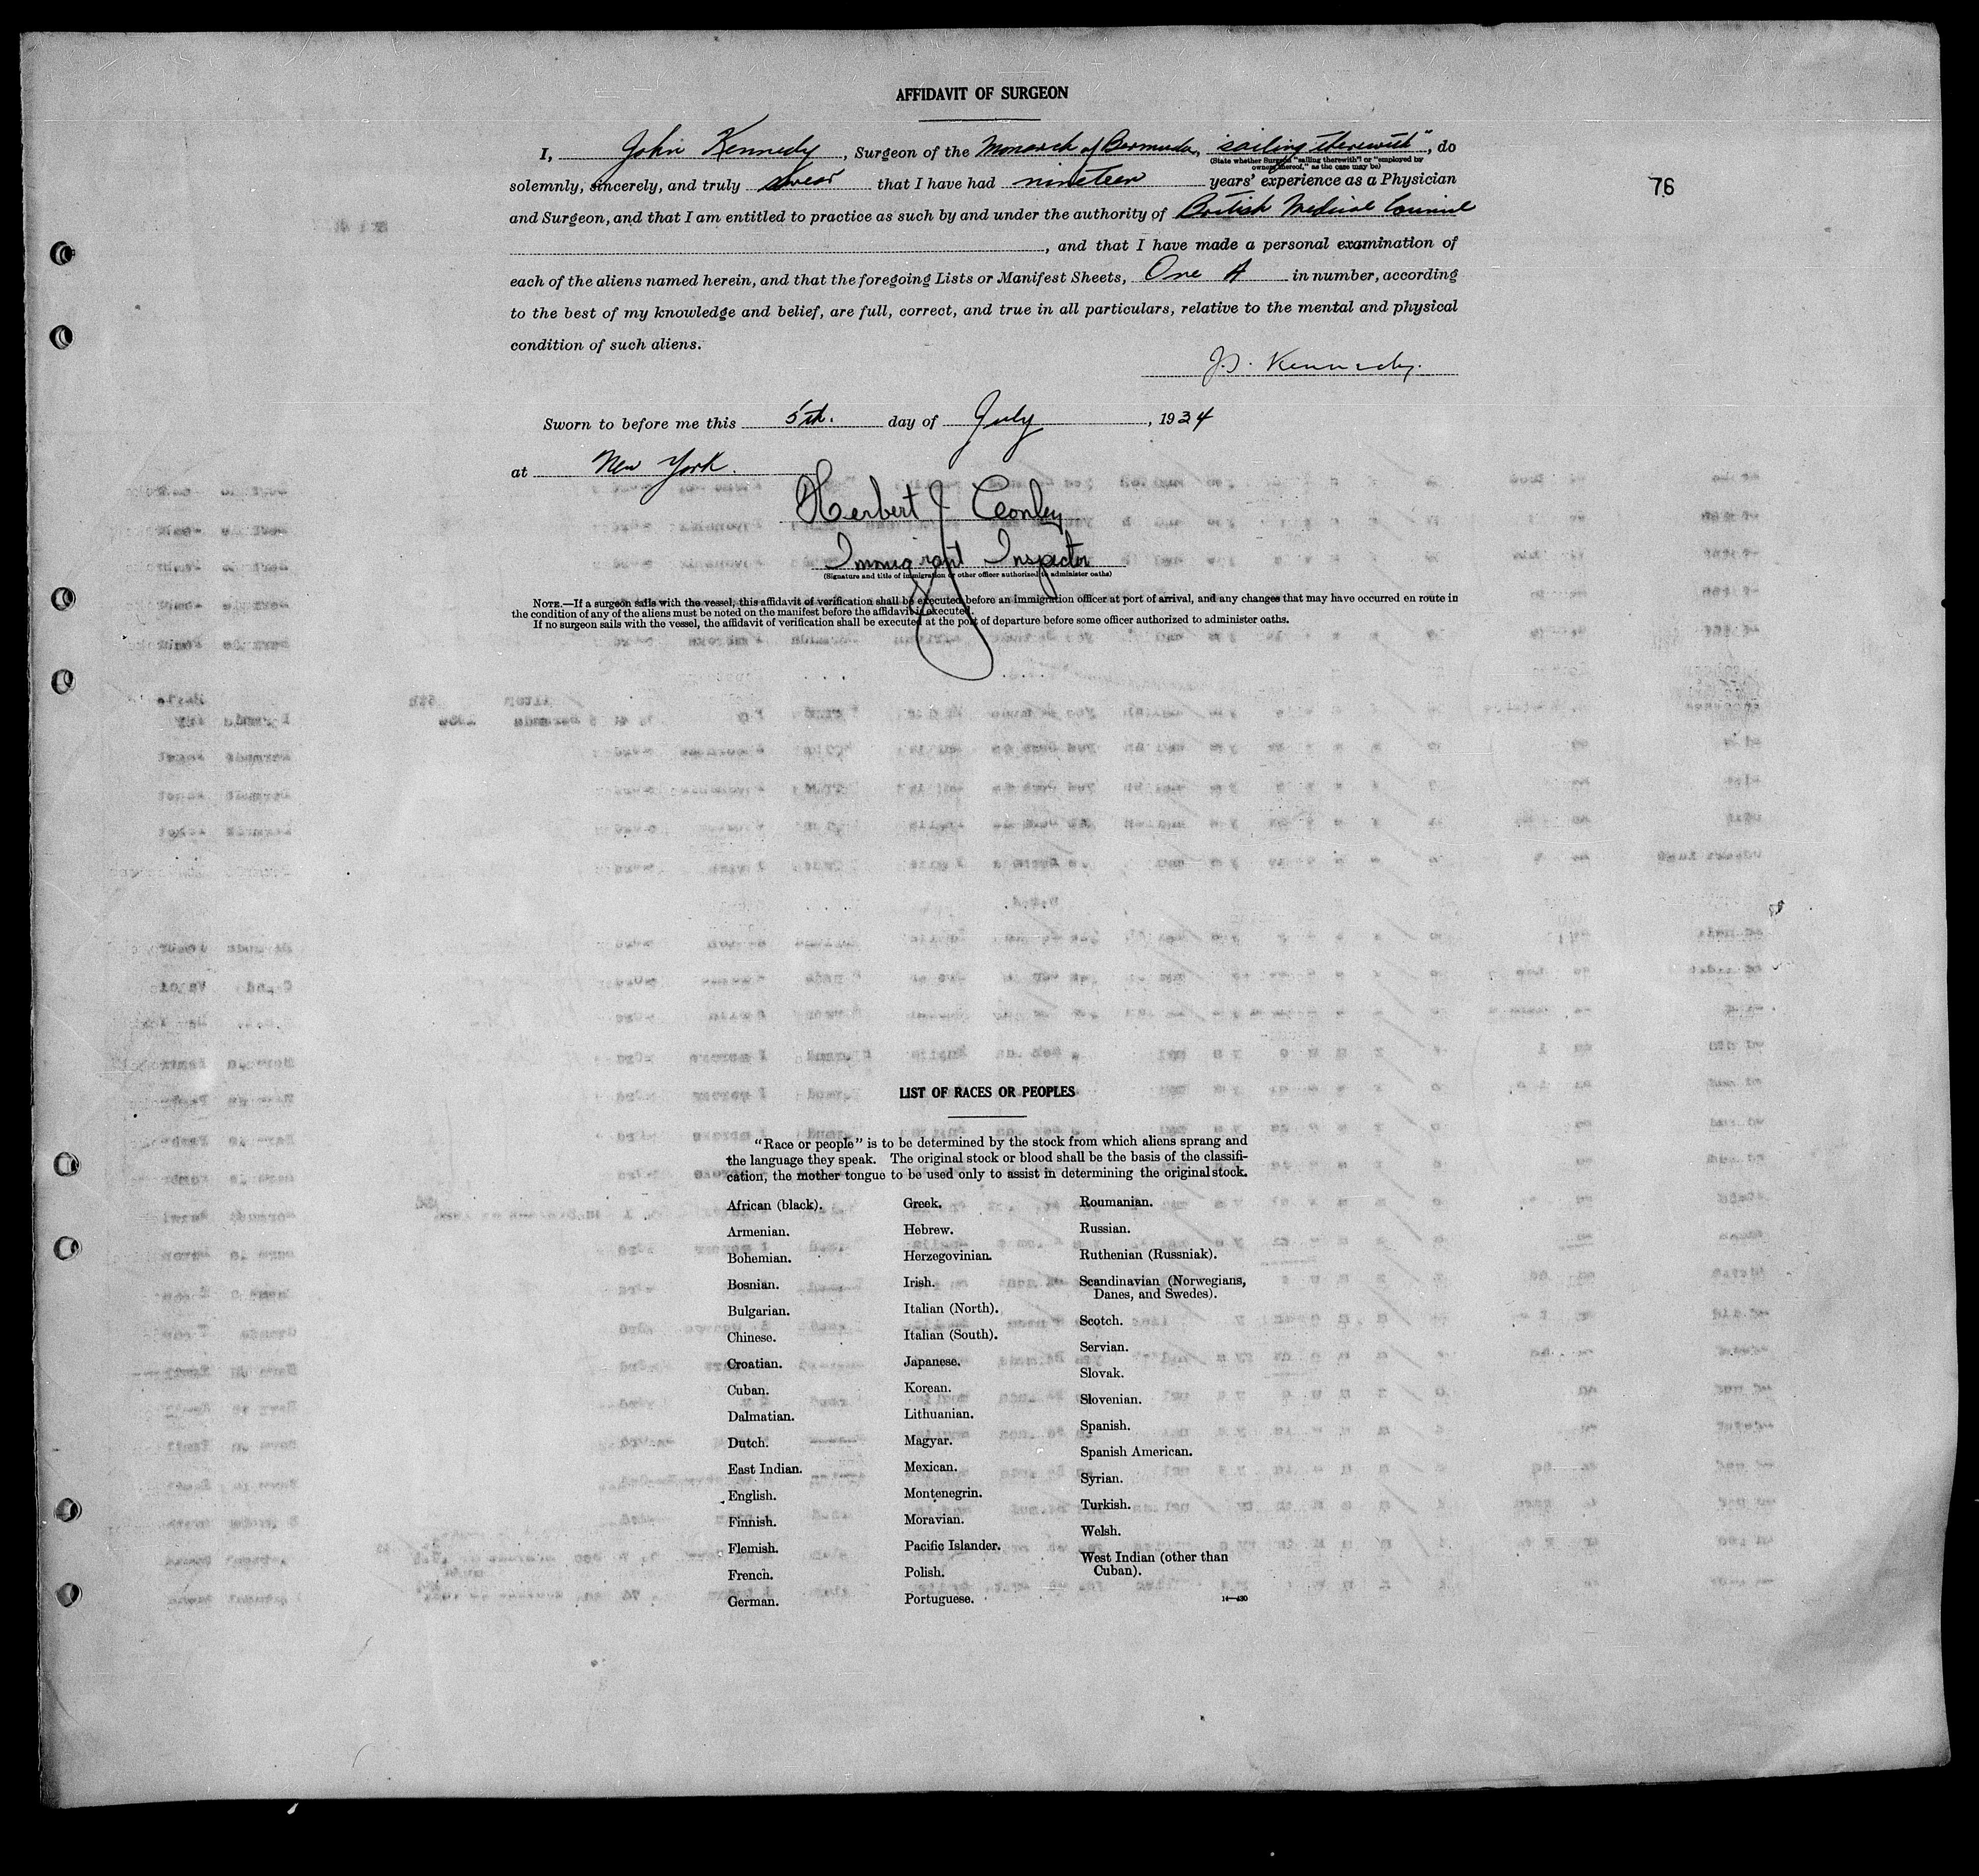 AFFIDAVIT OF SURGEON
I, John Kennedy, Surgeon of the Monarch of Bermuda, "sailing therewith", do
(State whether Surgeon "sailing therewith" or "employed by
owners thereof," as the case may be)
solemnly, sincerely, and truly swear that I have had nineteen years' experience as a Physician
76
and Surgeon, and that I am entitled to practice as such by and under the authority of British Medical Council
, and that I have made a personal examination of
each of the aliens named herein, and that the foregoing Lists or Manifest Sheets, One A in number, according
to the best of my knowledge and belief, are full, correct, and true in all particulars, relative to the mental and physical
condition of such aliens.
J. Kennedy.
Sworn to before me this 5th. day of July, 1934
at New York.
Herbert J Conley
Immigrant Inspector
(Signature and title of immigration or other officer authorized to administer oaths)
NOTE.—If a surgeon sails with the vessel, this affidavit of verification shall be executed before an immigration officer at port of arrival, and any changes that may have occurred en route in
the condition of any of the aliens must be noted on the manifest before the affidavit is executed.
If no surgeon sails with the vessel, the affidavit of verification shall be executed at the port of departure before some officer authorized to administer oaths.
LIST OF RACES OR PEOPLES
"Race or people" is to be determined by the stock from which aliens sprang and
the language they speak. The original stock or blood shall be the basis of the classifi-
cation, the mother tongue to be used only to assist in determining the original stock.
African (black).
Armenian.
Bohemian.
Bosnian.
Bulgarian.
Chinese.
Croatian.
Cuban.
Dalmatian.
Dutch.
East Indian.
English.
Finnish.
Flemish.
French.
German.
Greek.
Hebrew.
Herzegovinian.
Irish.
Italian (North).
Italian (South).
Japanese.
Korean.
Lithuanian.
Magyar.
Mexican.
Montenegrin.
Moravian.
Pacific Islander.
Polish.
Portuguese.
Roumanian.
Russian.
Ruthenian (Russniak).
Scandinavian (Norwegians,
Danes, and Swedes).
Scotch.
Servian.
Slovak.
Slovenian.
Spanish.
Spanish American.
Syrian.
Turkish.
Welsh.
West Indian (other than
Cuban).
14—430